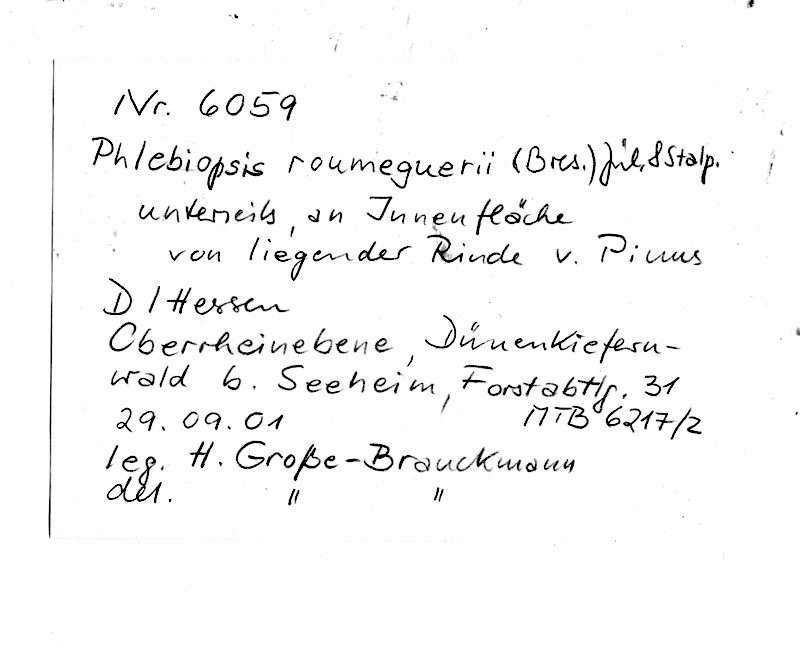 Nr. 6059
Phlebiopsis roumeguerii (Bres.) Jül. & Stalp.
unterseits, an Innenfläche
von liegender Rinde v. Pinus
D / Hessen
Oberrheinebene, Dünenkiefern-
wald b. Seeheim, Forstabtlg. 31
29.09.01 MTB 6217/2
leg. H. Große-Brauckmann
det. " "